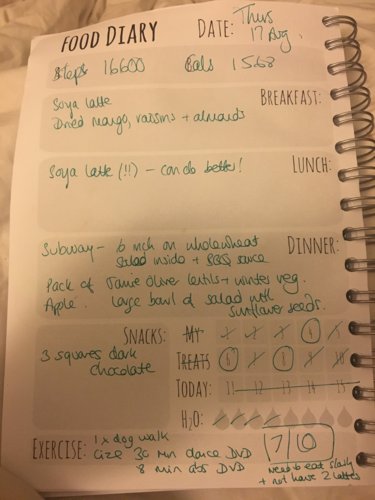 FOOD DIARY DATE: Thurs 17 Aug.
Steps 16600 Cals 1568
BREAKFAST:
Soya latte
Dried mango, raisins + almonds
LUNCH:
Soya latte (!!) – can do better!
DINNER:
Subway – 6 inch on wholewheat
salad inside + BBQ sauce
Pack of Jamie Oliver lentils + winter veg.
Apple. Large bowl of salad with
sunflower seeds.
SNACKS:
3 squares dark
chocolate
MY 1 2 3 4 5
TREATS 6 7 8 9 10
TODAY: 11 12 13 14 15
H2O:
EXERCISE: 1 x dog walk
Cize 30 min dance DVD
8 min abs DVD
7/10
need to eat
+ not have 2 lattes